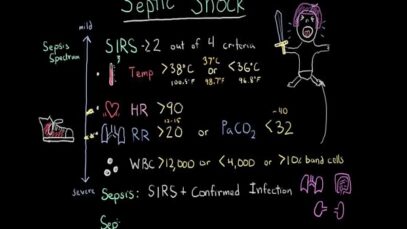 Septic Shock
mild
Sepsis
Spectrum
SIRS ≥2 out of 4 criteria
37°C
Temp >38°C or <36°C
100.5°F 98.7°F 96.8°F
HR >90
12-15 ~40
RR >20 or PaCO2 <32
WBC >12,000 or <4,000 or >10% band cells
severe
Sepsis: SIRS + Confirmed Infection
Sep: